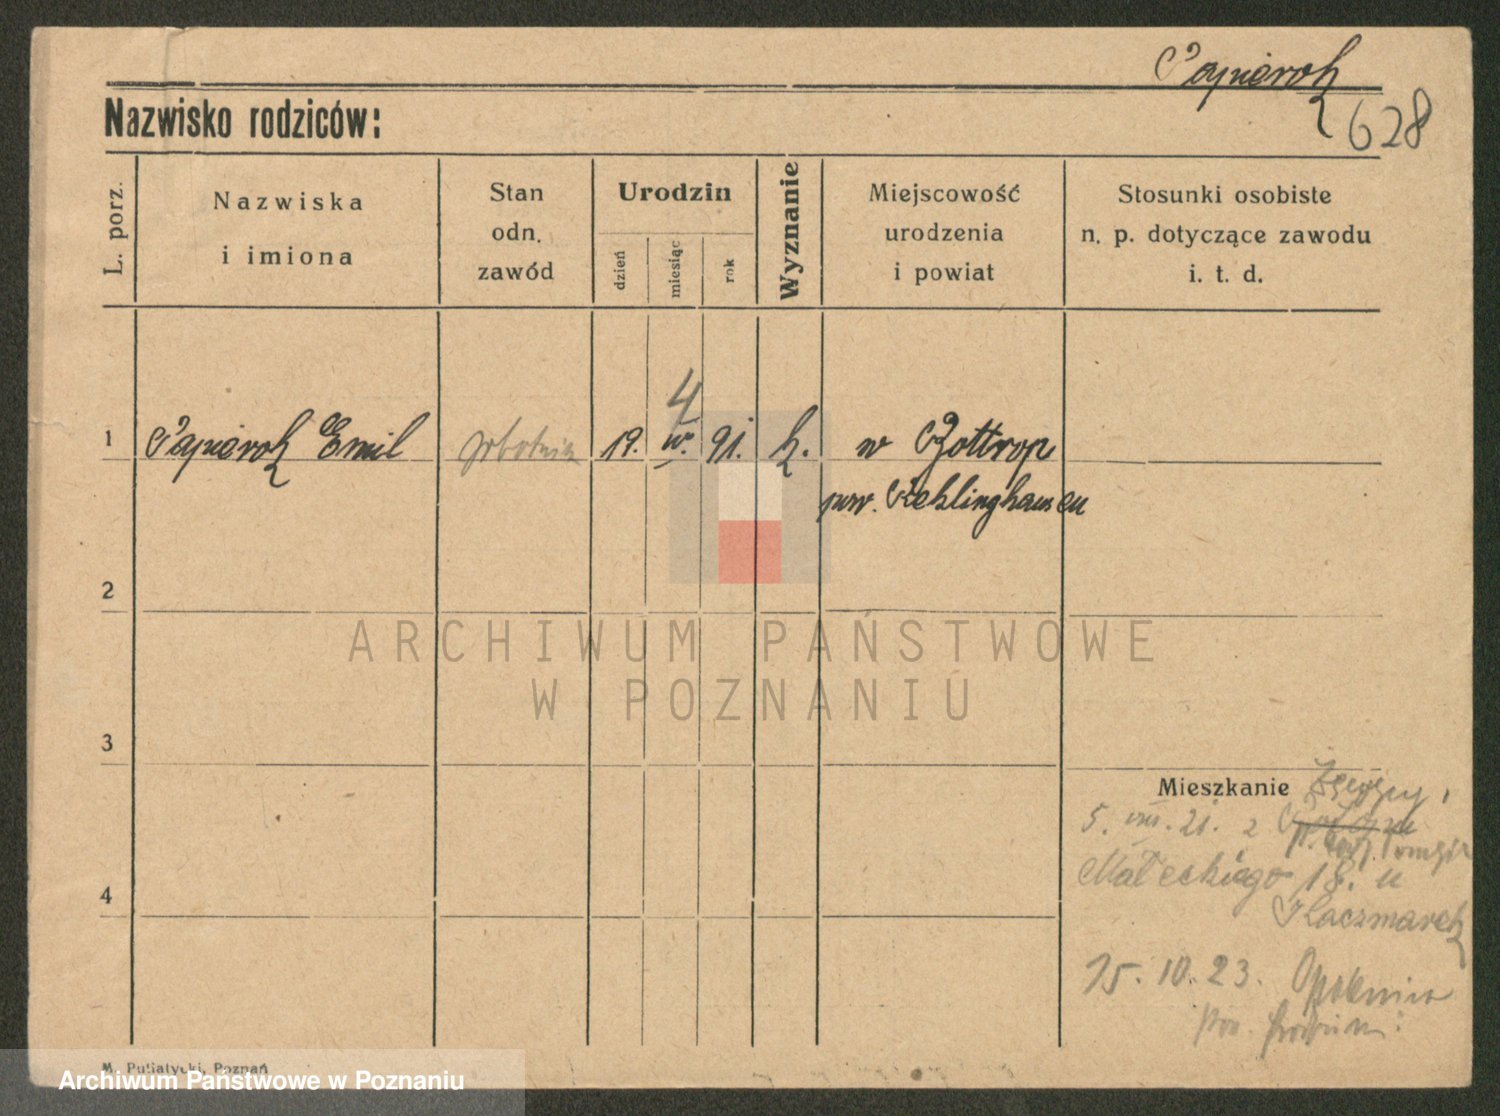 Papierok
628
Nazwisko rodziców:
L. porz.
Nazwiska
i imiona
Stan
odn.
zawód
Urodzin
dzień
miesiąc
rok
Wyznanie
Miejscowość
urodzenia
i powiat
Stosunki osobiste
n. p. dotyczące zawodu
i. t. d.
4
1 Papierok Emil robotnik 19. IV. 91. k. w Bottrop
pow. Reklinghausen
2
ARCHIWUM PAŃSTWOWE
W POZNANIU
3
Mieszkanie
5. VIII. 21. z
Małeckiego 18. u
Kaczmarek
4
15. 10. 23. Opalenica
pow.
M. Putiatycki, Poznań
Archiwum Państwowe w Poznaniu